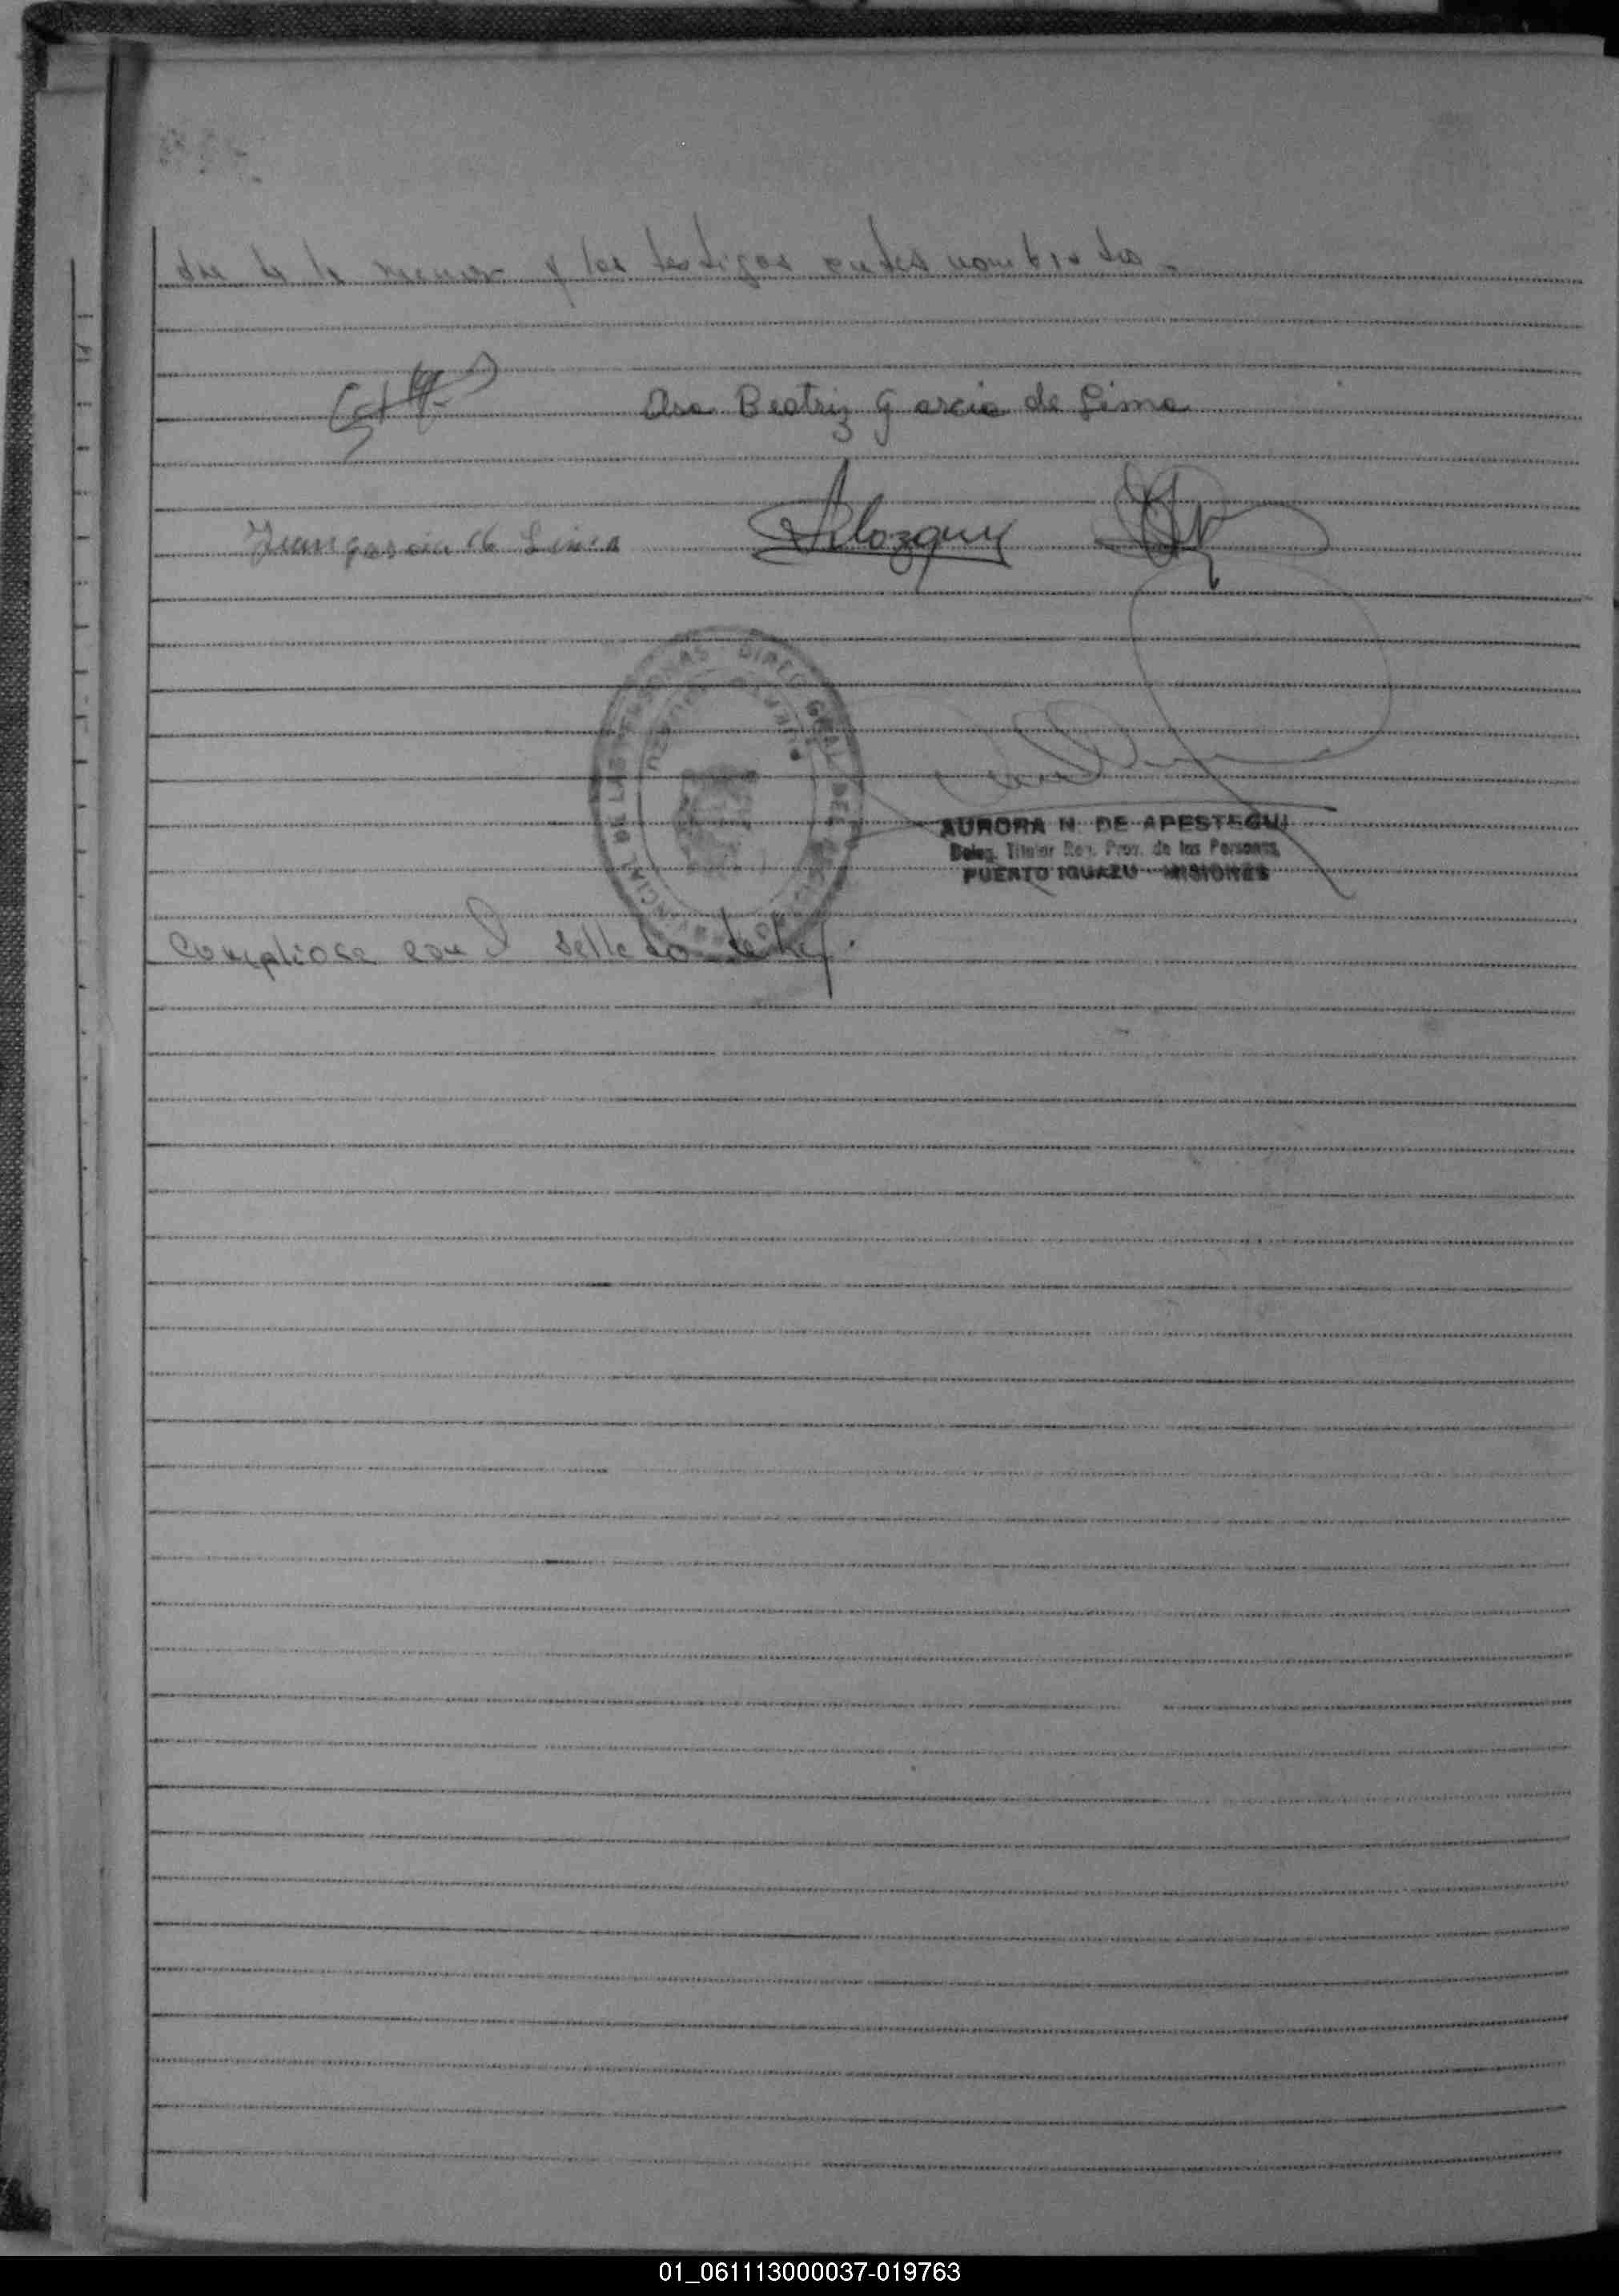 dre de la menor y los testigos antes nombrados.-
Ana Beatriz Garcia de Lima
Juan garcia de Lima Velozquez
PROVINCIAL DE LAS PERSONAS - DIREC. GRAL. DEL REGISTRO
AURORA N. DE APESTEGUI
Deleg. Titular Reg. Prov. de las Personas
PUERTO IGUAZU - MISIONES
Cumpliose con el sellado de ley.
01_061113000037-019763